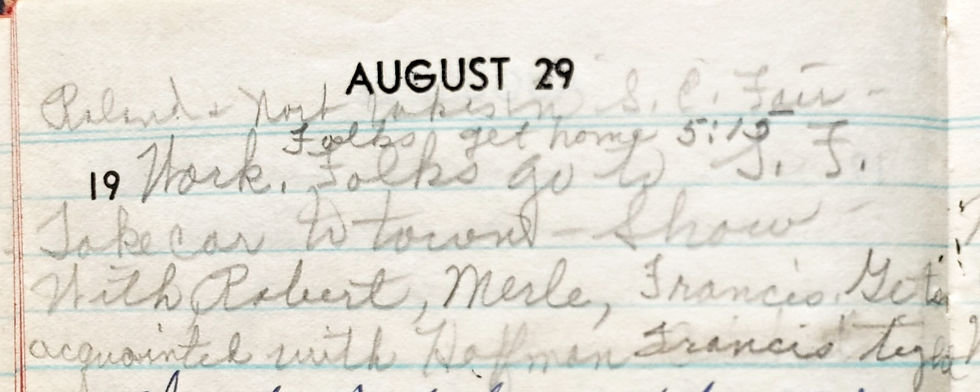 AUGUST 29
Roland & Mort takes in S. C. Fair -
Folks get home 5:15
19 Work. Folks go to S. F.
Take car to town - Show -
With Robert, Merle, Francis. Gets
acquainted with Hoffman Francis'